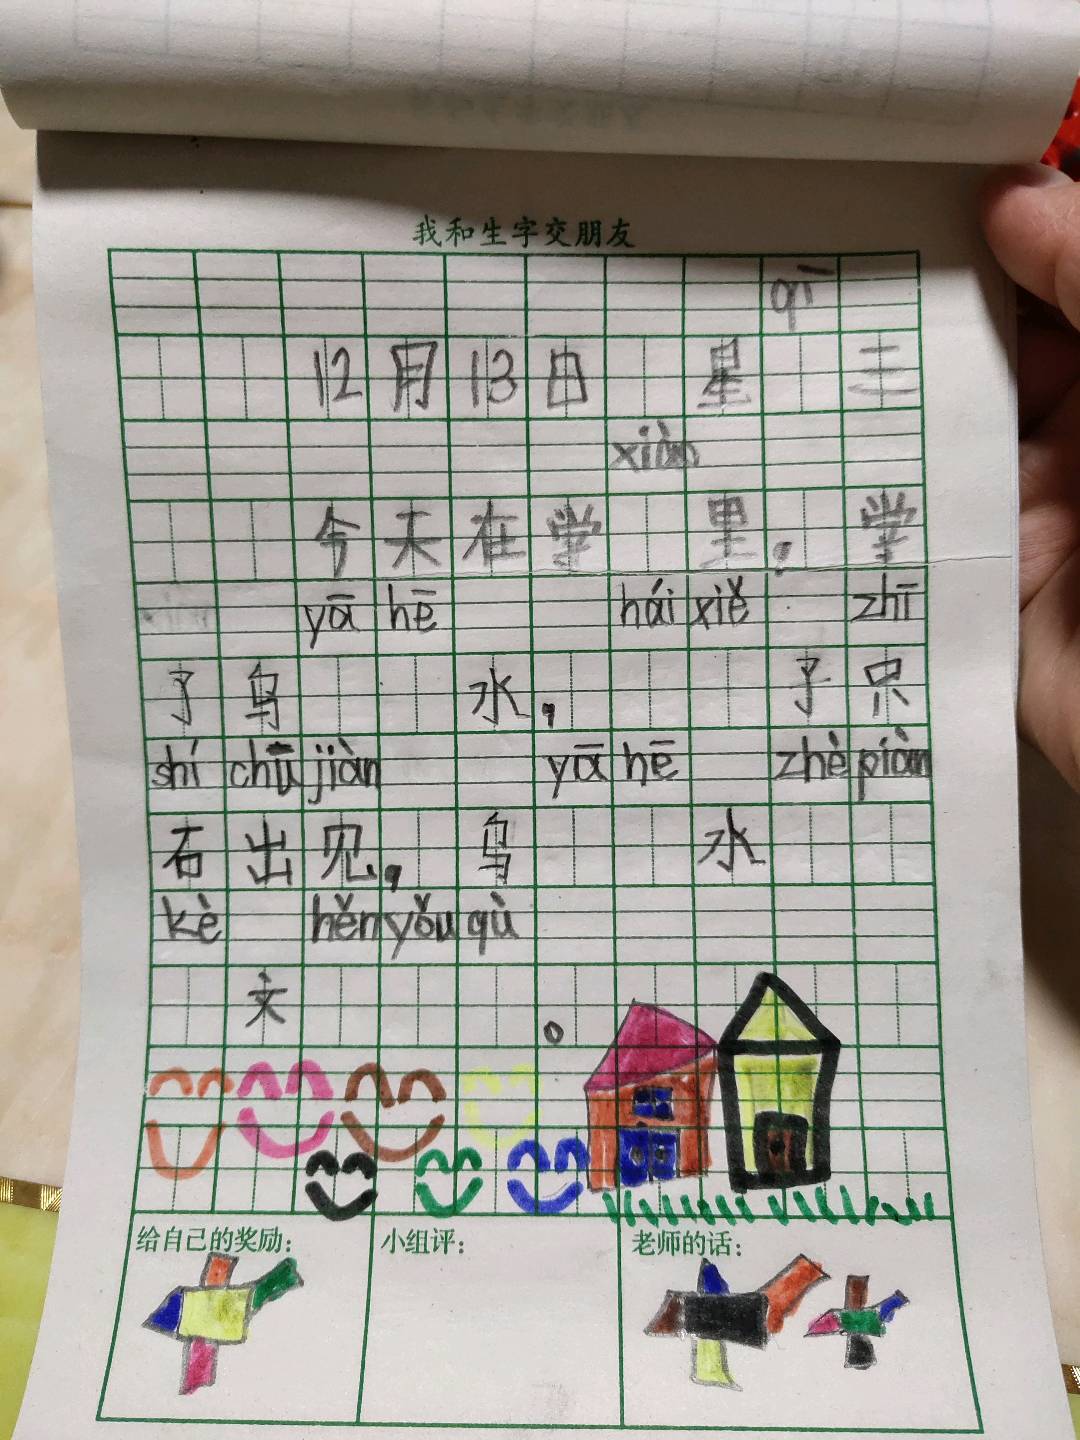 我和生字交朋友
qī
12月13日 星 三
xiàn
今天在学 里，学
yā hē hái xiě zhī
了乌 水， 了只
shí chū jiàn yā hē zhè piàn
石出见， 乌 水
kè hěn yǒu qù
文 。
给自己的奖励： 小组评： 老师的话：